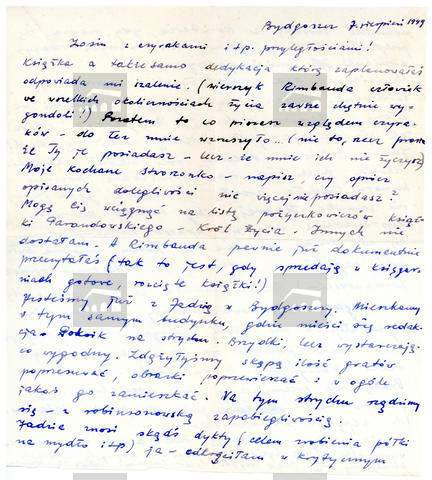 Bydgoszcz 7. sierpień 1949
Zosiu z czyrakami i t.p. przyległościami!
Książka a także samo dedykacja którą zaplanowałaś
odpowiada mi szalenie. (nieroczyk Rimbauda człowiek
we wszelkich okolicznościach życia zawsze chętnie wy-
gondoli!) Pozatem to co piszesz względem czyra-
ków - do łez mnie wzruszyło... (nie to, rzecz prosta
że Ty je posiadasz - lecz - że mnie ich nie życzysz)
Moje kochane stworzonko - napisz, czy oprócz
opisanych dolegliwości nie więcej nie posiadasz?
Mogę Cię wciągnąć na listę pożynkowiczów książ-
ki Parandowskiego - Król Życia. Innych nie
dostałam. A Rimbauda pewnie już dokumentnie
przeczytałaś (tak to jest, gdy sprzedają w księgar-
niach gotowe, rozcięte książki!)
Jesteśmy już z Jadzią w Bydgoszczy. Mieszkamy
w tym samym budynku, gdzie mieści się redak-
cja. Pokoik na strychu. Brzydki, lecz wystarczają-
co wygodny. Zdążyłyśmy skąpą ilość gratów
poprzesuwać, obrazki poprzewieszać i w ogóle
jakoś go zamieszkać. Na tym strychu rządzimy
się - z robinsonowską zapobiegliwością.
Jadzie znosi skądś dykty (celem zrobienia półki
na mydło itp) ja - odkręciłam w krytycznym